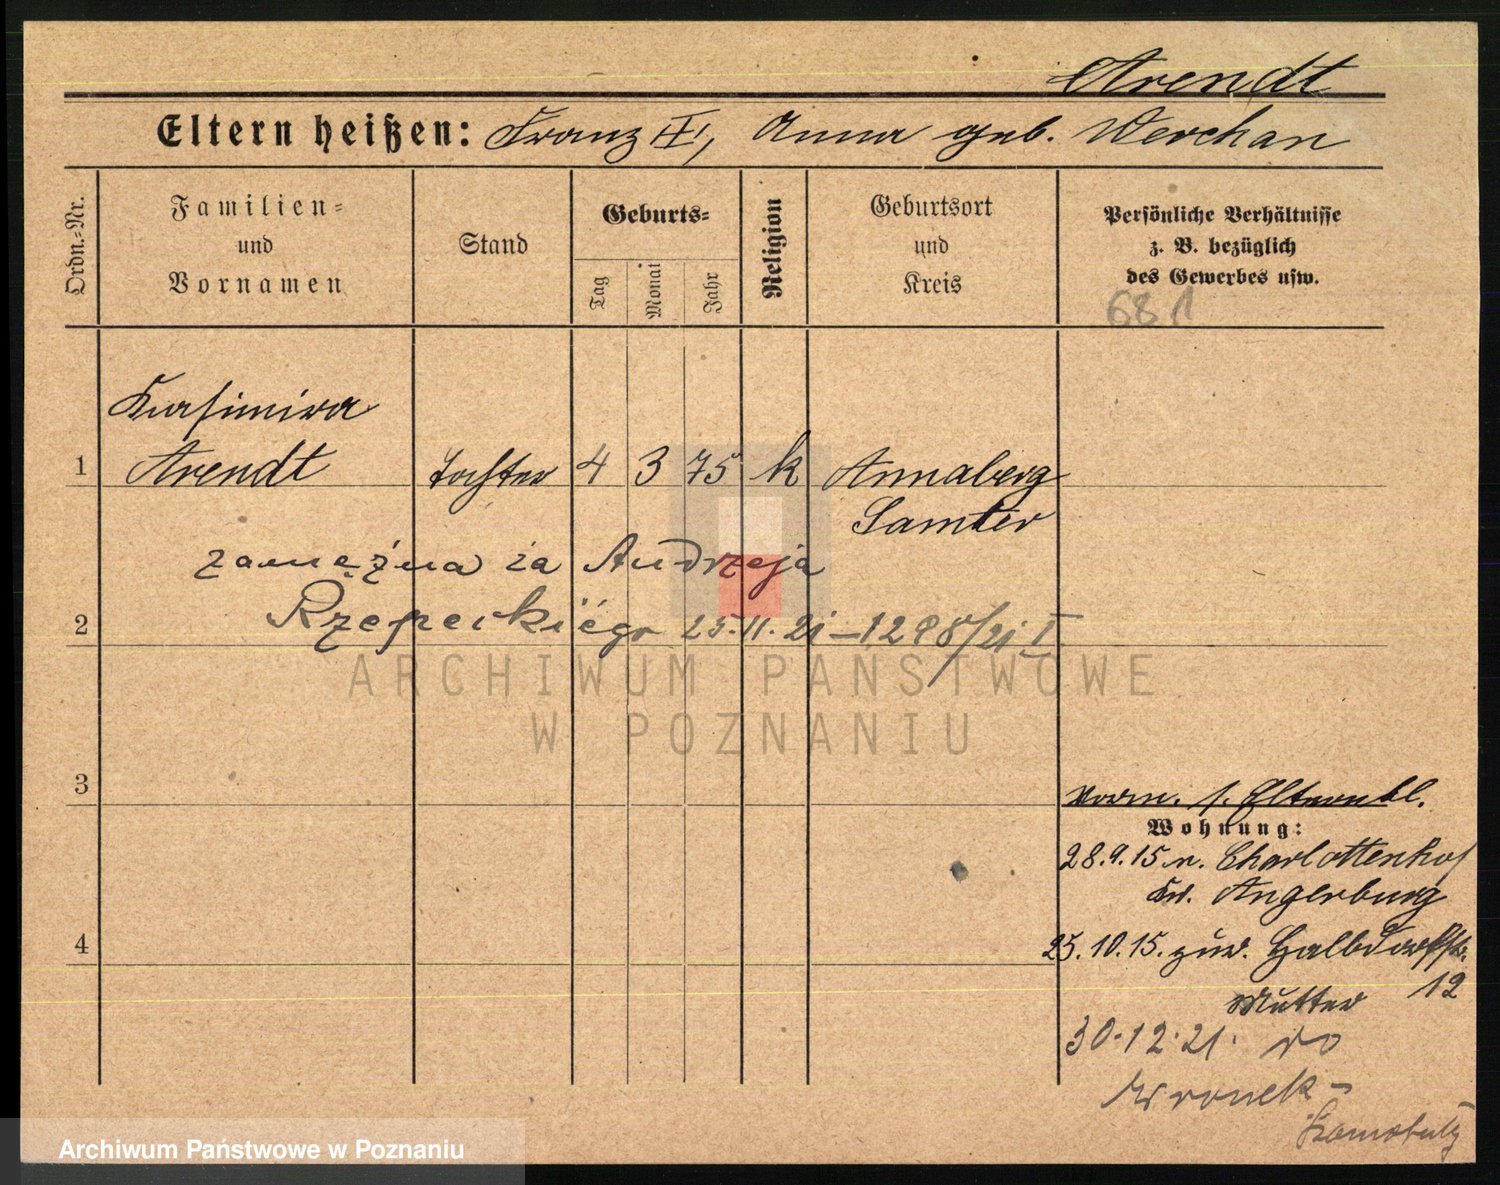 Arendt
Eltern heißen: Franz III, Anna geb. Werchan
Ordn.=Nr.
Familien=
und
Vornamen
Stand
Geburts=
Tag
Monat
Jahr
Religion
Geburtsort
und
Kreis
Persönliche Verhältnisse
z. B. bezüglich
des Gewerbes usw.
681
Kasimira
1 Arendt Tochter 4 3 75 k Annaberg
Samter
zamężna za Andrzeja
2 Rzepeckiégo 25.11.21 – 1298/21 I
ARCHIWUM PAŃSTWOWE
W POZNANIU
3
vorm. s. Elternbl.
Wohnung:
28.9.15 n. Charlottenhof
Kr. Angerburg
4
25.10.15. zur. Halbdorfstr.
12
Mutter
30.12.21. do
Wronek –
Szamotuły
Archiwum Państwowe w Poznaniu